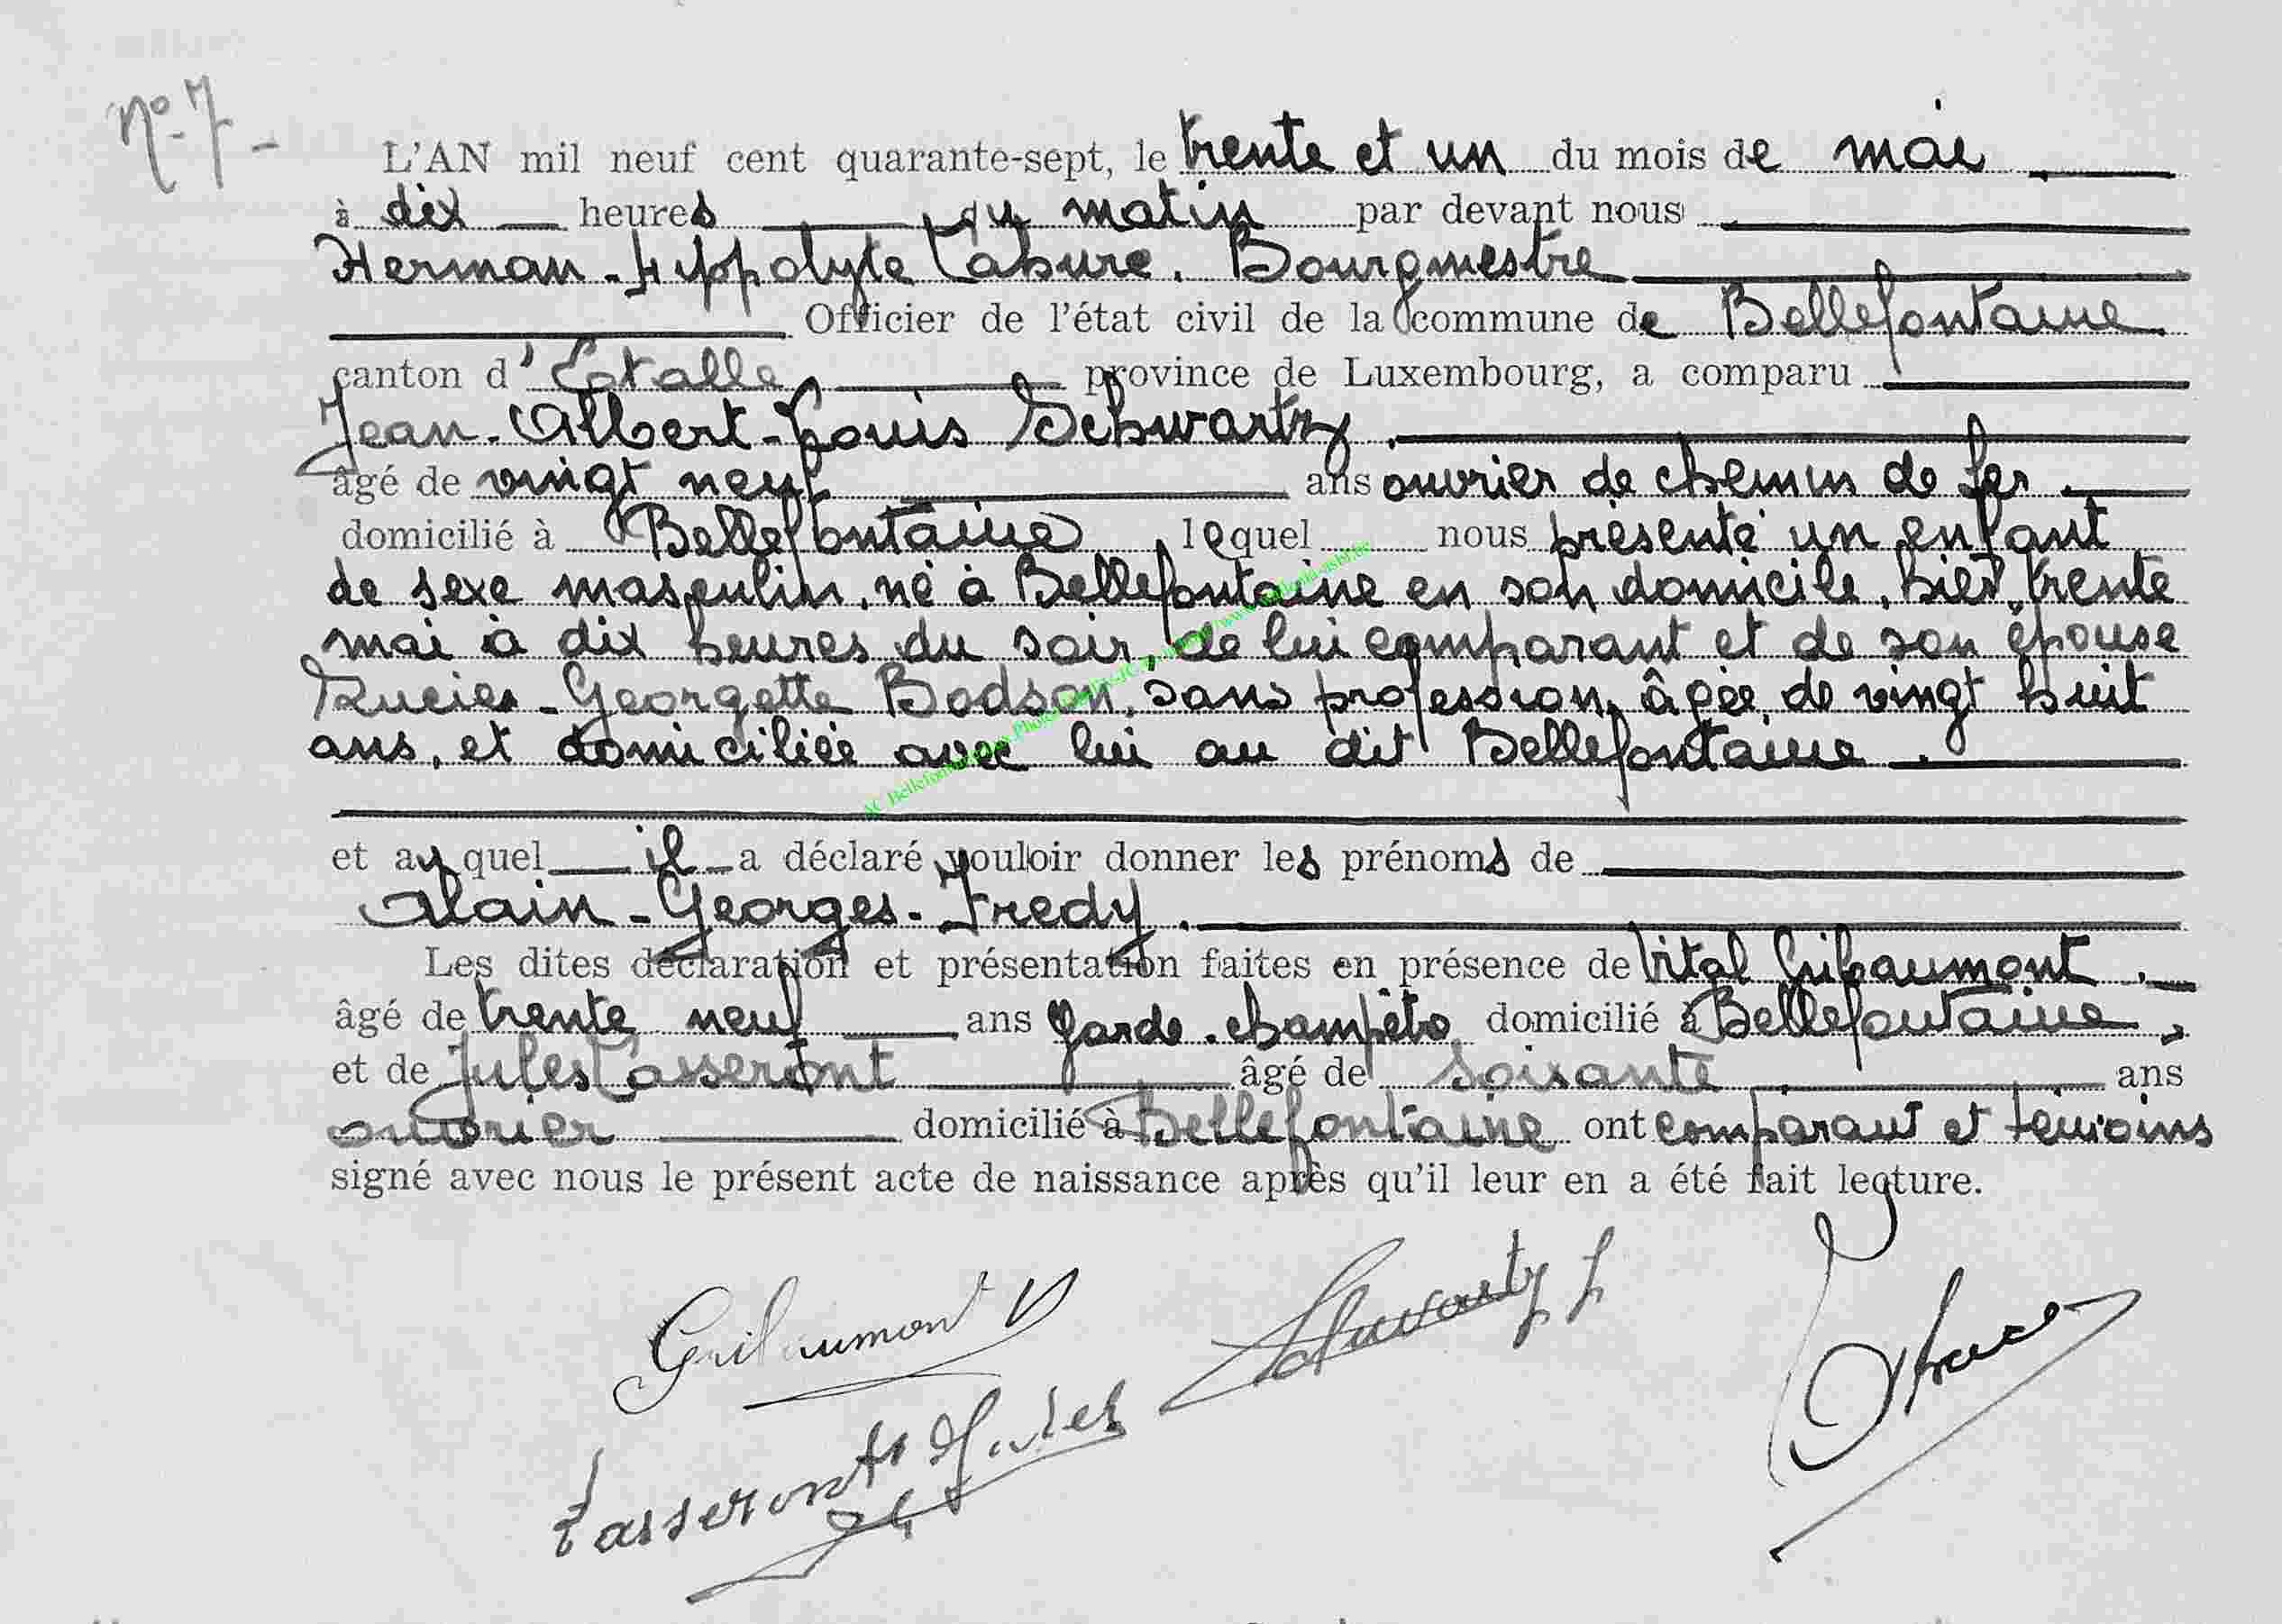 N° 7 -
L'AN mil neuf cent quarante-sept, le trente et un du mois de mai.
à dix heures du matin par devant nous
Herman-Hippolyte Labure. Bourgmestre
Officier de l'état civil de la commune de Bellefontaine
canton d'Etalle province de Luxembourg, a comparu
Jean-Albert-Louis Schwartz.
âgé de vingt neuf ans ouvrier de chemin de fer.
domicilié à Bellefontaine, lequel nous présenté un enfant
de sexe masculin, né à Bellefontaine en son domicile, hier, trente
mai à dix heures du soir, de lui comparant et de son épouse
Lucie-Georgette Bodson, sans profession, âgée de vingt huit
ans, et domiciliée avec lui au dit Bellefontaine.
et auquel il a déclaré vouloir donner les prénoms de
Alain-Georges-Fredy.
Les dites déclaration et présentation faites en présence de Vital Gribaumont.
âgé de trente neuf ans Garde-champêtre domicilié à Bellefontaine,
et de Jules Tasseront âgé de soixante ans
ouvrier domicilié à Bellefontaine ont comparant et témoins
signé avec nous le présent acte de naissance après qu'il leur en a été fait lecture.
Gribaumont V
Schwartz J
Tasseront Jules